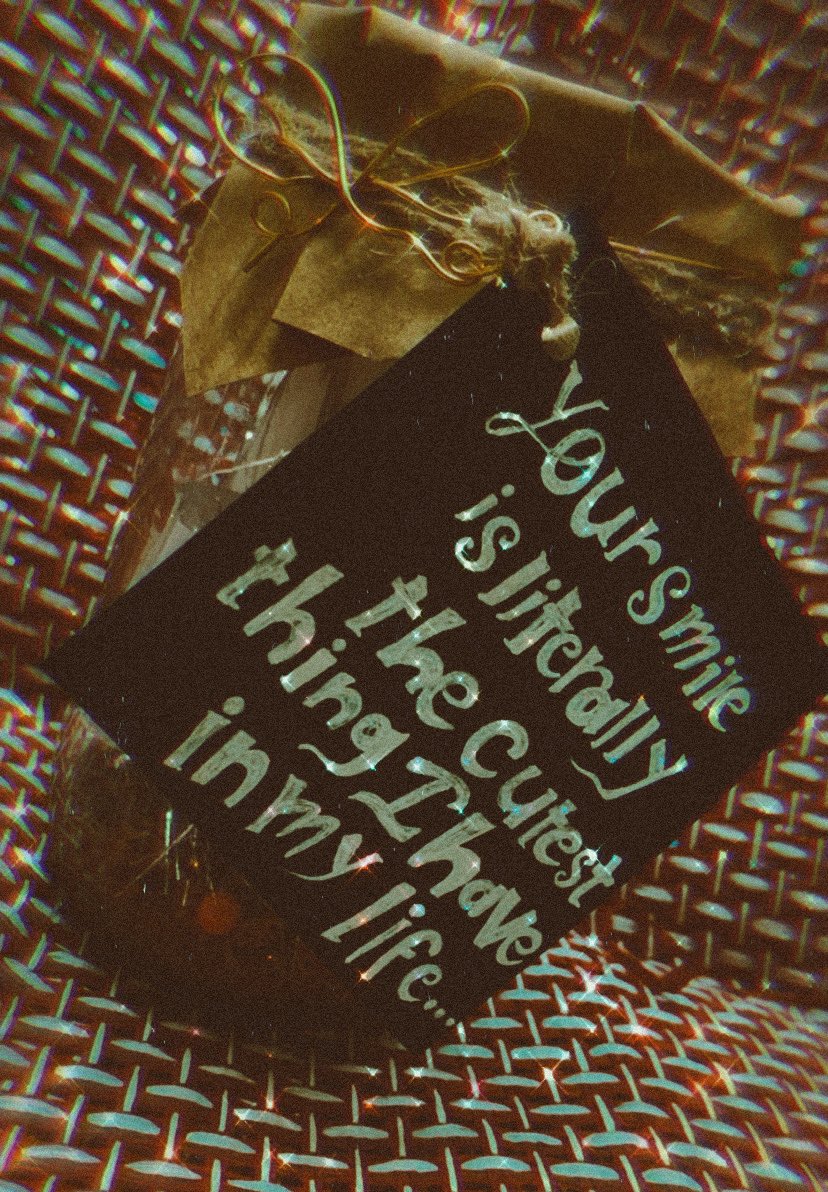 Your smile
is literally
the cutest
thing I have
in my life...